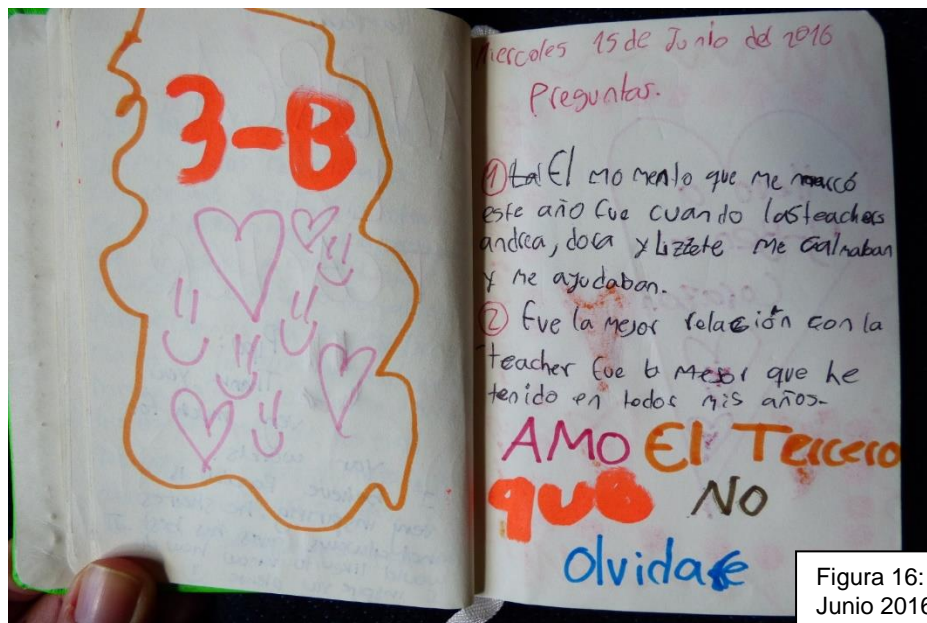 3-B
Miercoles 15 de Junio del 2016
Preguntas.
① El momento que me marcó
este año fue cuando las teachers
andrea, dora y Lizzete me calmaban
y me ayudaban.
② Fue la mejor relación con la
teacher fue la mejor que he
tenido en todos mis años.
AMO El Tercero
que NO
Olvidare
Figura 16:
Junio 2016